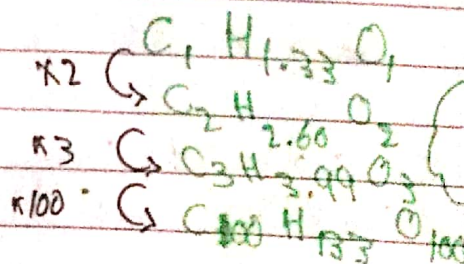 C₁ H₁.₃₃ O₁
×2 C₂ H₂.₆₀ O₂
×3 C₃ H₃.₉₉ O₃
×100 C₁₀₀ H₁₃₃ O₁₀₀